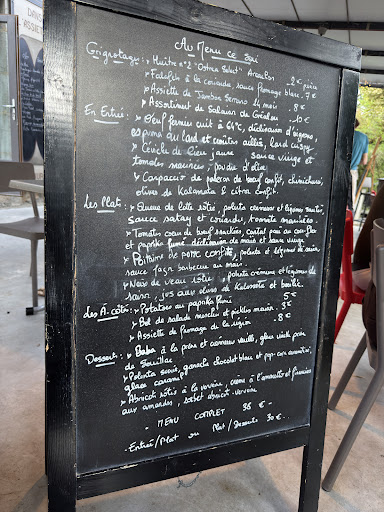 DANS
ASSIE
Au Menu ce soir
Grignotage : ➤ Huître n°2 "Ostrea Select" Arcachon 2€ pièce
➤ Falafels à la coriande, sauce fromage blanc 7€
➤ Assiette de Jambon Serrano 14 mois 8€
➤ Assortiment de Salaison de 10€
En Entrée : ➤ Oeuf fermier cuit à 64°c, déclinaison d'oignons,
espuma au lard et croûtons aillés, lard crispy
➤ Ceviche de lieu jaune sauce vierge et
tomates marinées, poudre d'olive
➤ Carpaccio de paleron de boeuf confit, chimichurri,
olives de Kalamata & citron confit.
Les Plats : ➤ Queue de lotte rôtie, polenta crémeuse et légumes sautés
sauce satay et coriande, tomates marinées
➤ Tomates coeur de boeuf snackées, cantal pané au cornflex
et paprika fumé déclinaison de maïs et sauce vierge
➤ Poitrine de porc confite, polenta et légumes de saison,
sauce façon barbecue au maïs.
➤ Noix de veau rôtie, polenta crémeuse et légumes de
saison, jus aux olives de Kalamata et basilic.
Les À côtés : ➤ Potatoes au paprika fumé 5€
➤ Bol de salade mesclun et pickles maison 3€
➤ Assiette de fromage de la région 8€
Desserts : ➤ Baba à la poire et caramel vanille, glace vanille poire
de Souillac
➤ Polenta sucrée, ganache chocolat blanc et pop corn caramélisé,
glace caramel
➤ Abricot rôtis à la verveine, crème à l'amaretto et financier
aux amandes, sorbet abricot-verveine
- MENU COMPLET 36 € -
- Entrée/Plat ou Plat/Desserts 30 € -